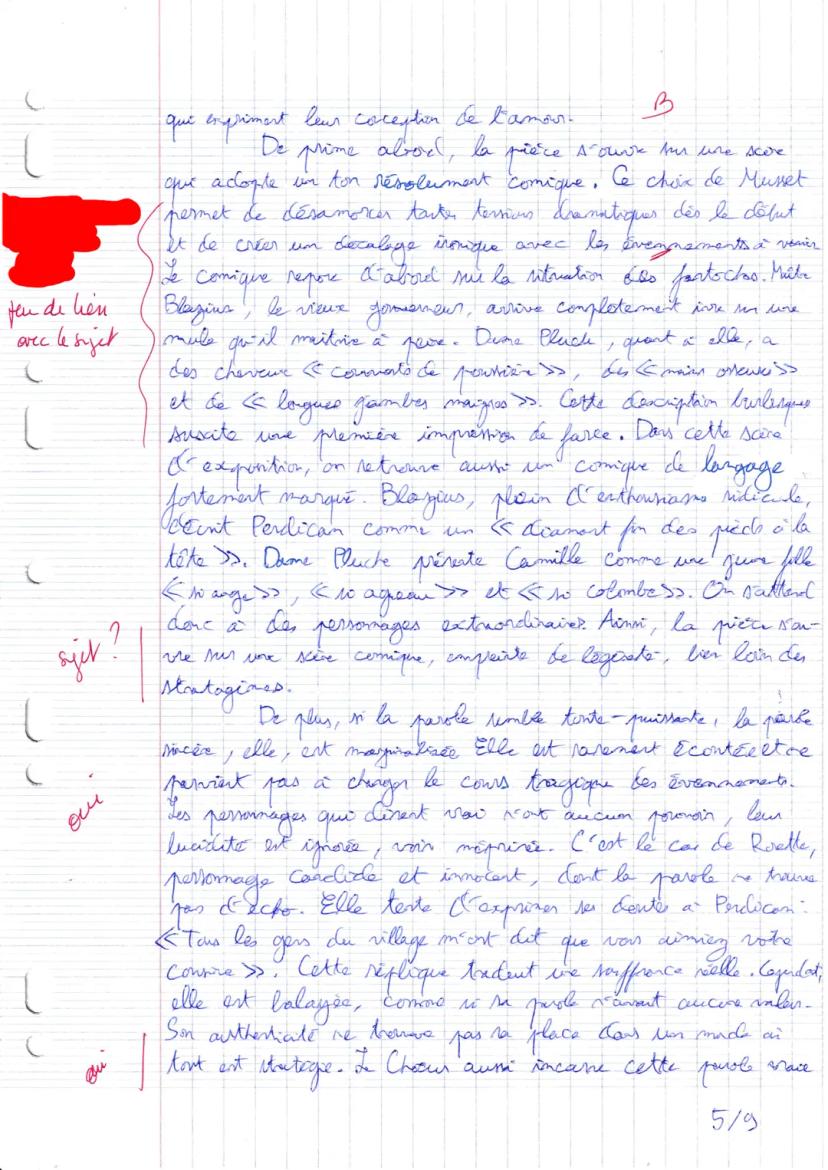 B
qui expriment leur conception de l'amour.
De prime abord, la pièce s'ouvre sur une scène
qui adopte un ton résolument comique. Ce choix de Musset
permet de désamorcer toutes tensions dramatiques dès le début
et de créer un décalage ironique avec les évennements à venir
Le comique repose d'abord sur la situation des fantoches. Maître
peu de lien
avec le sujet
Blazius, le vieux gouverneur, arrive complètement ivre sur une
mule qu'il maitrise à peine. Dame Pluche, quant à elle, a
des cheveux << couverts de poussière >>, des << mains osseuses >>
et de << longues jambes maigres >>. Cette description burlesque
suscite une première impression de farce. Dans cette scène
d'exposition, on retrouve aussi un comique de langage
fortement marqué. Blazius, plein d'enthousiasme ridicule,
décrit Perdican comme un << diamant fin des pieds à la
tête >>. Dame Pluche présente Camille comme une jeune fille
<< si ange >>, << si agneau >> et << si colombe >>. On s'attend
donc à des personnages extraordinaires. Ainsi, la pièce s'ou-
sujet ?
vre sur une scène comique, empreinte de légèreté, bien loin des
stratagèmes.
De plus, si la parole semble toute-puissante, la parole
sincère, elle, est marginalisée Elle est rarement écoutée et ne
parvient pas à changer le cours tragique des évennements.
oui
Les personnages qui disent vrai n'ont aucun pouvoir, leur
lucidité est ignorée, voir méprisée. C'est le cas de Rosette,
personnage candide et innocent, dont la parole ne trouve
pas d'écho. Elle tente d'exprimer ses doutes à Perdican :
<< Tous les gens du village m'ont dit que vous aimiez votre
cousine >>. Cette réplique traduit une souffrance réelle. Cependant,
elle est balayée, comme si sa parole n'avait aucune valeur.
Son authenticité ne trouve pas sa place dans un monde où
oui
tout est stratégie. Le Chœur aussi incarne cette parole vraie
5/9